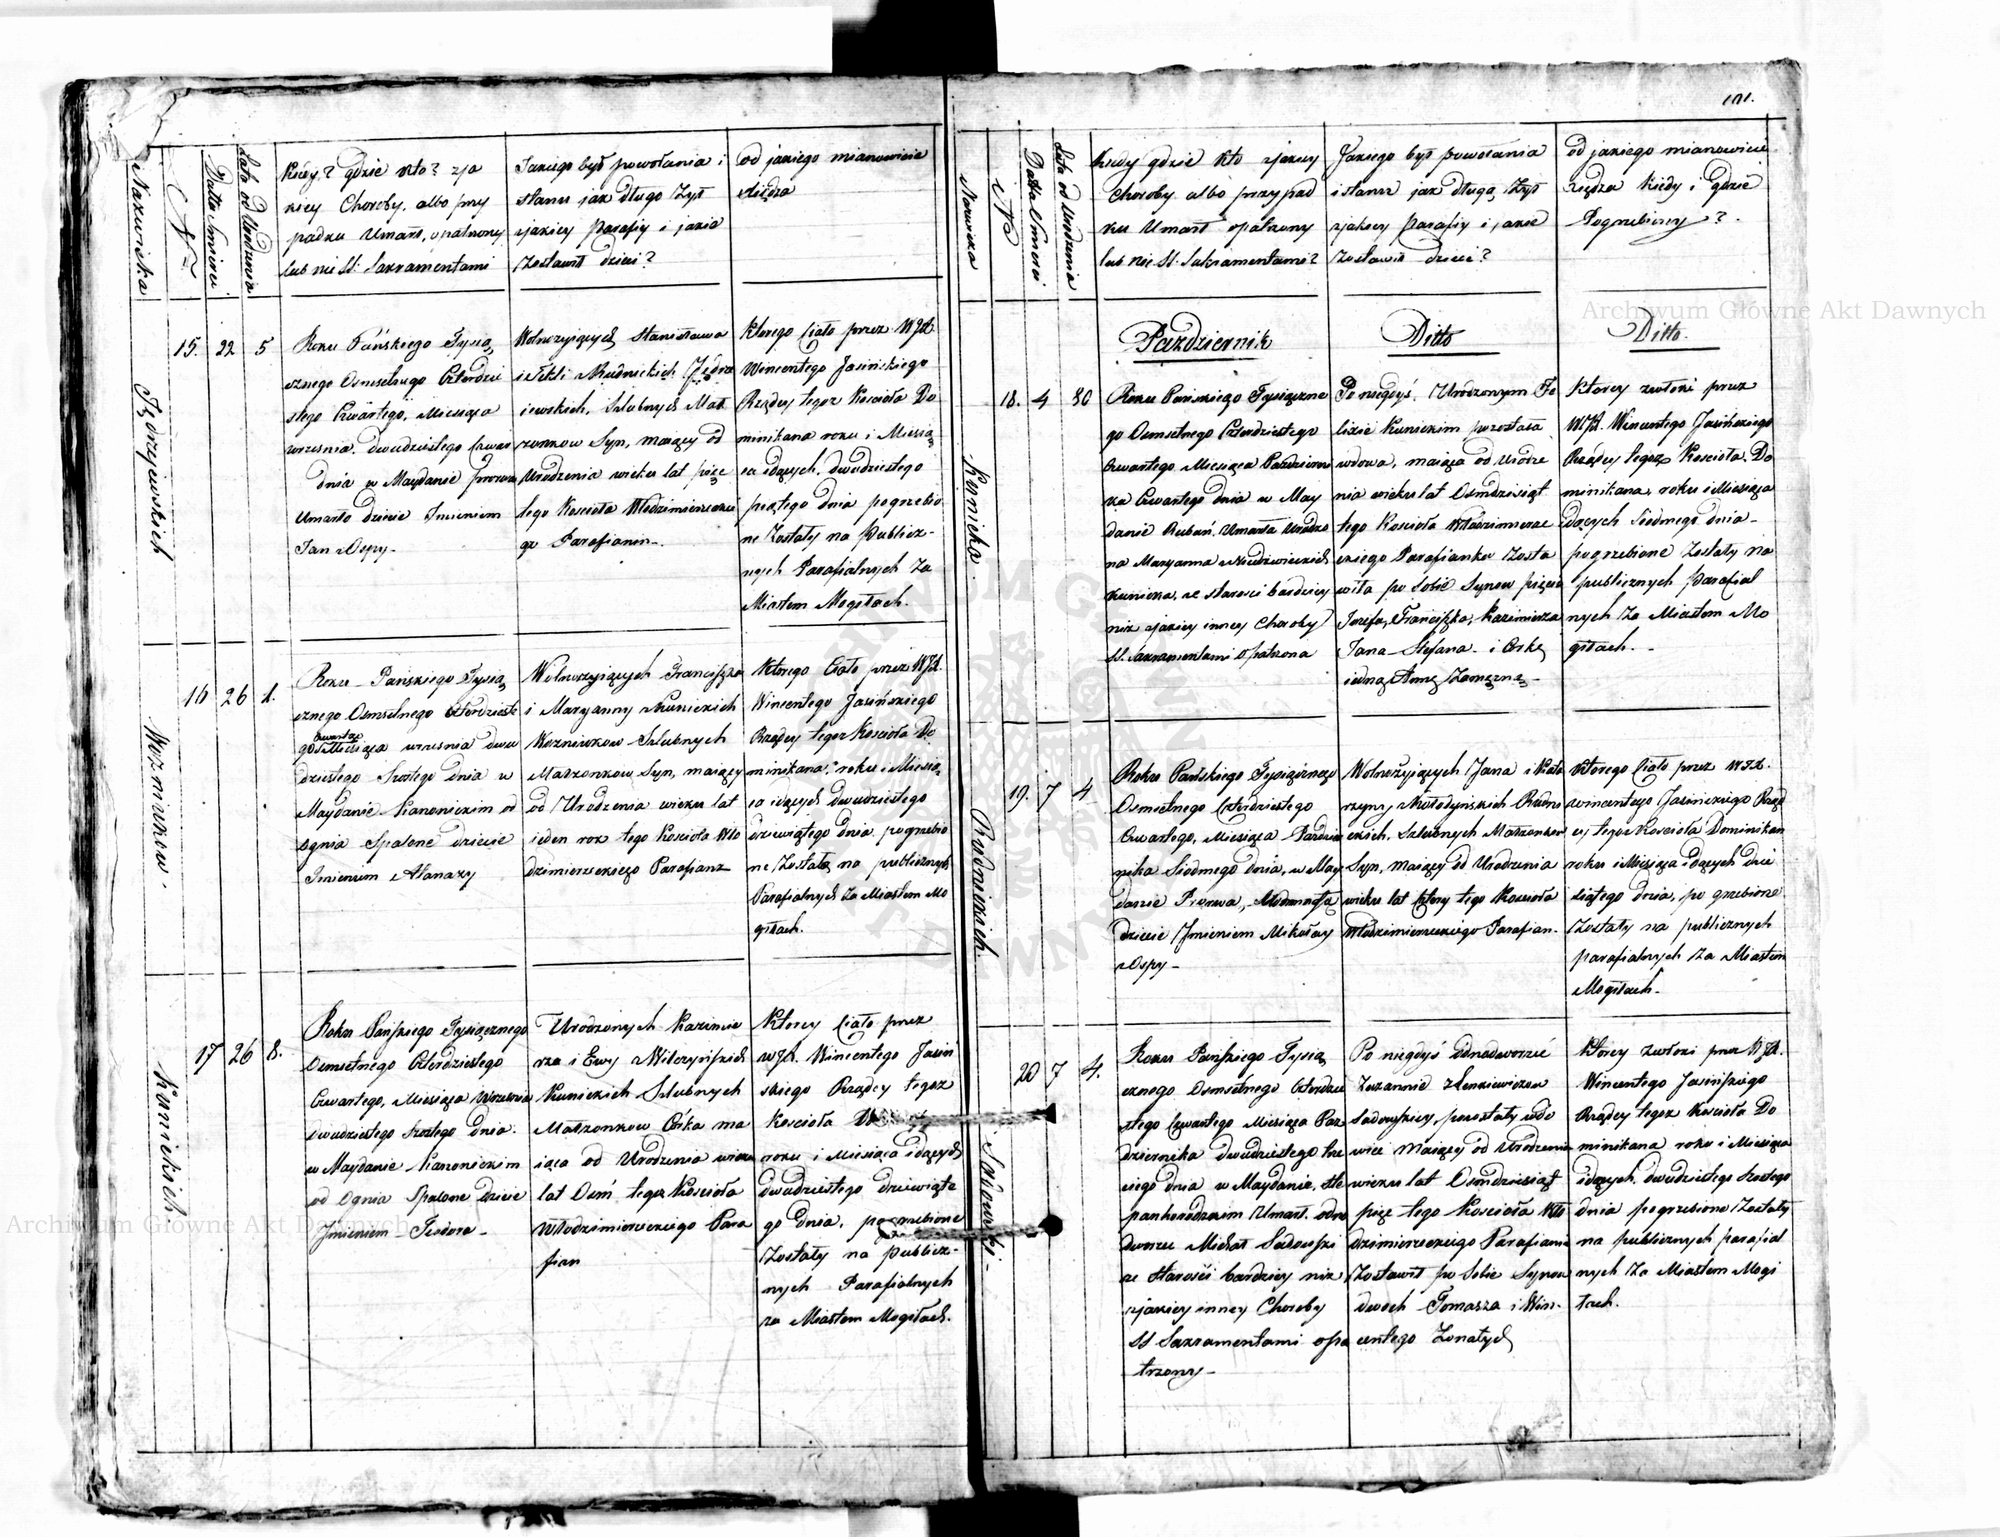 101.
Nazwiska
N
Datta Smierci
Lata od Urodzenia
Kiedy? gdzie kto? z ja
kiey Choroby, albo przy
padku Umarł, opatrzony
lub nie SS. Sakramentami
Jakiego był powołania i
stanu jak długo żył
z jakiey Parafiy i jakie
Zostawił dzieci?
od jakiego mianowicie
Xiędza
Jędrzeiewskich
15. 22 5
Roku Pańskiego Tysią
cznego Osmsetnego Czterdzie
stego Czwartego, Miesiąca
września dwudziestego
dnia w Maydanie
Umarło dziecie Imieniem
Jan z Ospy.
Wolnożyiących Stanisława
i Tekli z Rudnickich Jędrze
iewskich, Szlubnych Mał
żonkow Syn, maiący od
Urodzenia wieku lat pięć
tego Kościoła Włodzimierzecki
go Parafianin.
Ktorego Ciało przez WJX.
Wincentego Jasińskiego
Rządcy tegoż Kościoła Do
minikana roku i Miesią
ca idących, dwudziestego
piątego dnia pogrzebio
ne Zostały na Publicz-
nych Parafialnych Za
Miastem Mogiłach.
Woznikow.
16 26 1.
Roku Pańskiego Tysią
cznego Osmsetnego Czterdzieste
go Czwartego Miesiąca września dwu
dziestego Szostego dnia w
Maydanie Kanonickim od
ognia Spalone dziecie
Imieniem Atanazy
Wolnożyiących Franciszka
i Maryanny z Kunickich
Woznikow Szlubnych
Małżonkow Syn, maiący
od Urodzenia wieku lat
ieden rok tego Kościoła Wło
dzimierzeckiego Parafianin
Ktorego Ciało przez WJX.
Wincentego Jasińskiego
Rządcy tegoż Kościoła Do
minikana, roku i Miesią
ca idących dwudziestego
dziewiątego dnia pogrzebio
ne Zostałe na publicznych
Parafialnych Za Miastem Mo
giłach.
Kunickich
17 26 8.
Roku Pańskiego Tysiącznego
Osmsetnego Czterdziestego
Czwartego, Miesiąca Wrzesnia
dwudziestego Szostego dnia
w Maydanie Kanonickim
od Ognia Spalone dziecie
Imieniem Teodora
Urodzonych Kazimie
rza i Ewy z Wilczyńskich
Kunickich Szlubnych
Małżonkow Córka ma
iąca od Urodzenia wieku
lat Osm tegoż Kościoła
Włodzimierzeckiego Para
fian
Ktorey Ciało przez
WJX. Wincentego Jasiń
skiego Rządcy tegoż
Kościoła
roku i Miesiąca idących
dwudziestego dziewiąte
go dnia, pogrzebione
Zostały na Publicz-
nych Parafialnych
za Miastem Mogiłach.
Nazwiska
N
Datta Smierci
Lata od Urodzenia
Kiedy gdzie kto z jakiey
Choroby albo przypad
ku Umarł opatrzony
lub nie SS. Sakramentami?
Jakiego był powołania
i stanu jak długo żył
z jakiey Parafiy i jakie
Zostawił dzieci?
od jakiego mianowicie
Xiędza Kiedy i gdzie
Pogrzebiony?
Październik
Ditto
Ditto.
Kunicka.
18. 4 80
Roku Pańskiego Tysiączne
go Osmsetnego Czterdziestego
Czwartego Miesiąca Październi
ka Czwartego dnia w May
danie Umarła Urodzo
na Maryanna z Niedzwieckich
Kunicka, ze starosci bardziey
niż z jakiey inney Choroby
SS. Sakramentami Opatrzona
Po niegdyś Urodzonym Fe
lixie Kunickim pozostała
wdowa, maiąca od Urodze
nia wieku lat Osmdziesiąt
tego Kościoła Włodzimierze
ckiego Parafianka Zosta
wiła po sobie Synow pięciu
Jozefa, Franciszka, Kazimierza
Jana Stefana i Corkę
iedną Annę Zamężną
Ktorey zwłoki przez
WJX. Wincentego Jasińskiego
Rządcy tegoż Kościoła Do
minikana, roku i Miesiąca
idących Siodmego dnia
pogrzebione Zostały na
publicznych Parafial
nych Za Miastem Mo
giłach.
Rudnickich
19. 7 4
Roku Pańskiego Tysiącznego
Osmsetnego Czterdziestego
Czwartego, Miesiąca Paździer
nika Siodmego dnia, w May
danie
dziecie Imieniem Mikołay
z Ospy
Wolnożyiących Jana i Kata
rzyny z Mołodyńskich Rudni
ckich, Szlubnych Małżonkow
Syn, maiący od Urodzenia
wieku lat Cztery tego Kościoła
Włodzimierzeckiego Parafian.
Ktorego Ciało przez WJX.
Wincentego Jasińskiego Rząd
cy tegoż Kościoła Dominikan
roku i Miesiąca idących dzie
siątego dnia, pogrzebione
Zostały na publicznych
parafialnych Za Miastem
Mogiłach.
Sadowski.
20 7 4.
Roku Pańskiego Tysią
cznego Osmsetnego Czterdzie
stego Czwartego Miesiąca Paź
dziernika dwudziestego trze
ciego dnia w Maydanie Ste
pankorodzkim Umarł odno
dworzec Michał Sadowski
ze Starości bardziey niż
z jakiey inney Choroby
SS Sakramentami opa
trzony
Po niegdyś Odnodworzcie
Zuzannie z Lenkiewiczow
Sadowskiey, pozostały wdo
wiec Maiący od Urodzenia
wieku lat Osmdziesiąt
pięć tego Kościoła Wło
dzimierzeckiego Parafianin
Zostawił po Sobie Synow
dwoch Tomasza i Win-
centego Zonatych
Ktorey Zwłoki przez WJX.
Wincentego Jasińskiego
Rządcy tegoż Kościoła Do
minikana roku i Miesiąca
idących dwudziestego Szostego
dnia pogrzebione Zostały
na publicznych parafial
nych Za Miastem Mogi
łach.
Archiwum Główne Akt Dawnych
Archiwum Główne Akt Dawnych